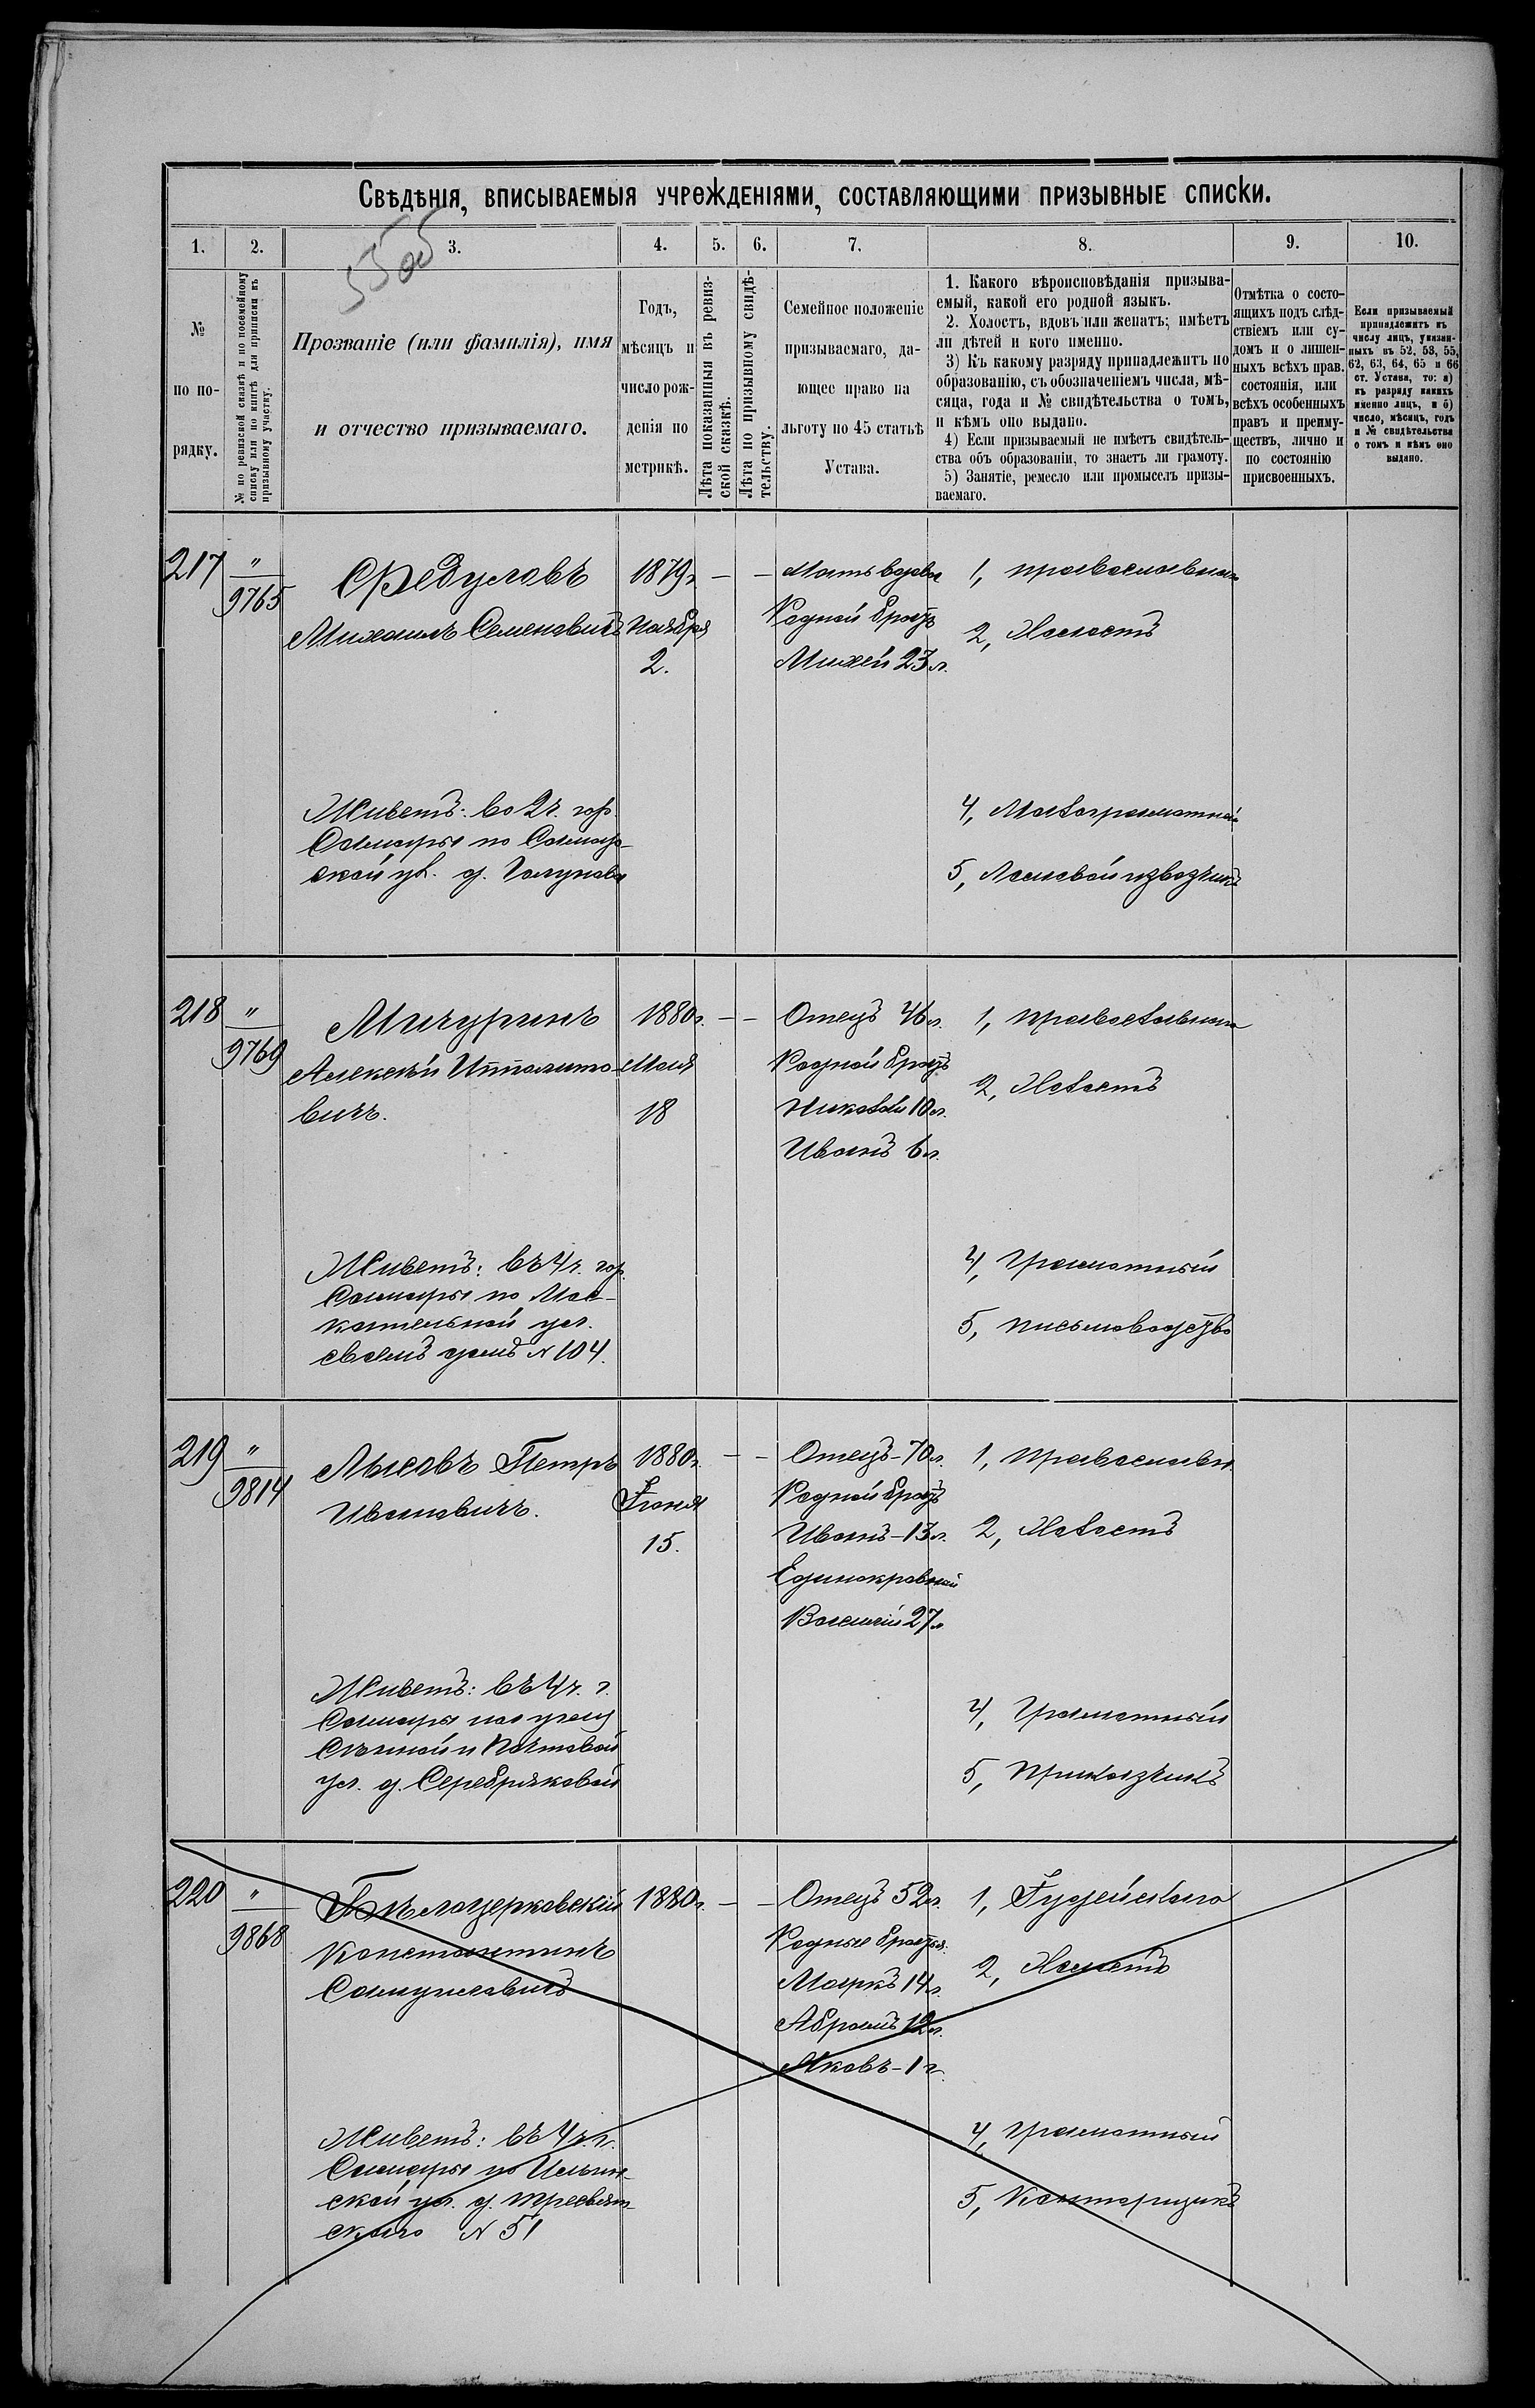 Свѣдѣнія, вписываемыя учрежденіями, составляющими призывные списки.
55об
1. 2. 3. 4. 5. 6. 7. 8. 9. 10.
№
по по-
рядку.
№ по ревизской сказкѣ и по посемейному
списку или по книгѣ для приписки къ
призывному участку.
Прозваніе (или фамилія), имя
и отчество призываемаго.
Годъ,
мѣсяцъ и
число рож-
денія по
метрикѣ.
Лѣта показанныя въ ревиз-
ской сказкѣ.
Лѣта по призывному свидѣ-
тельству.
Семейное положеніе
призываемаго, да-
ющее право на
льготу по 45 статьѣ
Устава.
1. Какого вѣроисповѣданія призыва-
емый, какой его родной языкъ.
2. Холостъ, вдовъ или женатъ; имѣетъ
ли дѣтей и кого именно.
3) Къ какому разряду принадлежитъ по
образованію, съ обозначеніемъ числа, мѣ-
сяца, года и № свидѣтельства о томъ,
и кѣмъ оно выдано.
4) Если призываемый не имѣетъ свидѣтель-
ства объ образованіи, то знаетъ ли грамоту.
5) Занятіе, ремесло или промыселъ призы-
ваемаго.
Отмѣтка о состо-
ящихъ подъ слѣд-
ствіемъ или су-
домъ и о лишен-
ныхъ всѣхъ прав.
состоянія, или
всѣхъ особенныхъ
правъ и преиму-
ществъ, лично и
по состоянію
присвоенныхъ.
Если призываемый
принадлежитъ къ
числу лицъ, указан-
ныхъ въ 52, 53, 55,
62, 63, 64, 65 и 66
ст. Устава, то: а)
къ разряду какихъ
именно лицъ, и б)
число, мѣсяцъ, годъ
и № свидѣтельства
о томъ и кѣмъ оно
выдано.
217 " 9765
Федуловъ
Михаилъ Семеновичъ
1879г.
Ноября
2.
— —
Мать вдова
Родной братъ
Михей 23 л.
1, православнаго
2, Холостъ
Живетъ: во 2ч. гор.
Самары по Самар-
ской ул. д. Голунова
4, Малограмотный
5, Ломовой извозчикъ
218 " 9769
Мичуринъ
Алексѣй Ипполито-
вичъ.
1880г.
Мая
18
— —
Отецъ 46 л.
Родной братъ
Николай 10 л.
Иванъ 6 л.
1, православнаго
2, Холостъ
Живетъ: въ 4ч. гор.
Самары по Мос-
кательной ул.
своемъ домѣ N 104.
4, Грамотный
5, письмоводство
219 " 9814
Лысовъ Петръ
Ивановичъ.
1880г.
Іюня
15.
— —
Отецъ - 70 л.
Родной братъ
Иванъ - 13 л.
Единокровный
Василій 27 л.
1, Православн.
2, Холостъ
Живетъ: въ 4ч. г.
Самары на углу
Сѣнной и Почтовой
ул. д. Серебряковой
4, Грамотный
5, Приказчикъ
220 " 9868
Бѣлоцерковскій
Константинъ
Самуиловичъ
1880г.
— —
Отецъ 52 л.
Родные братья
Маркъ 14 л.
Абрамъ 12 л.
Яковъ - 1 г.
1, Іудейскаго
2, Холостъ
Живетъ: въ 4ч. г.
Самары по Ильин-
ской ул. д. Тресвят-
скаго N 51
4, Грамотный
5, Конторщикъ